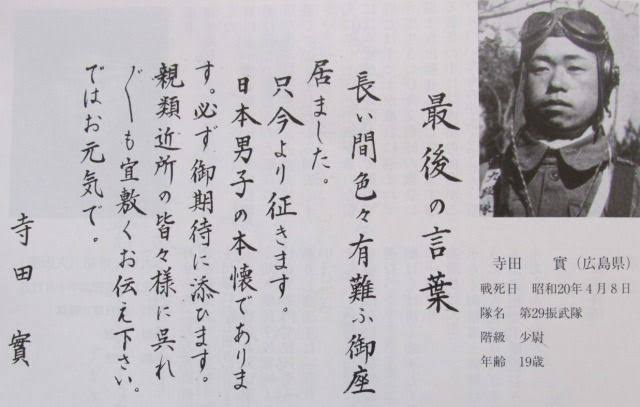 最後の言葉
長い間色々有難ふ御座
居ました。
只今より征きます。
日本男子の本懐でありま
す。必ず御期待に添ひます。
親類近所の皆々様に呉れ
〴〵も宜敷くお伝え下さい。
ではお元気で。
寺田 實
寺田 實（広島県）
戦死日 昭和20年4月8日
隊名 第29振武隊
階級 少尉
年齢 19歳